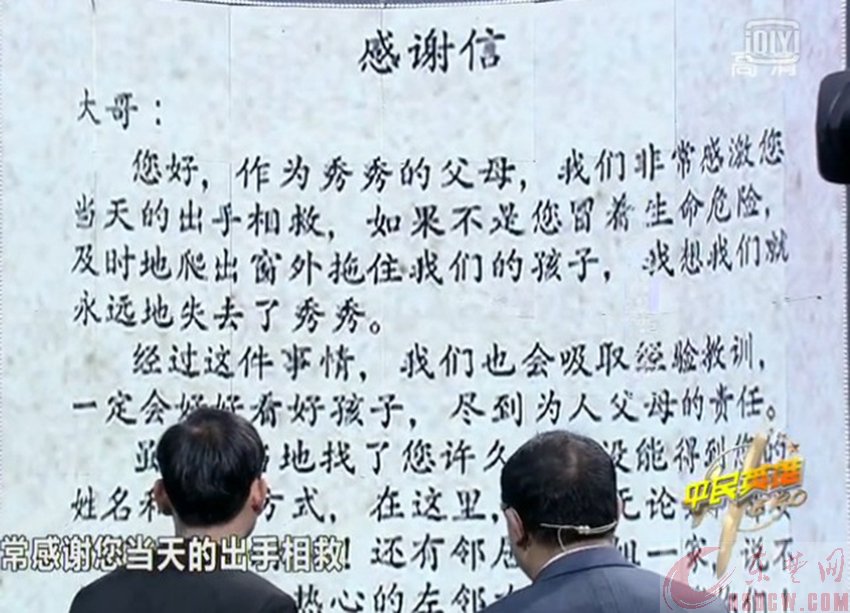 感谢信
大哥：
您好，作为秀秀的父母，我们非常感激您
当天的出手相救，如果不是您冒着生命危险，
及时地爬出窗外拖住我们的孩子，我想我们就
永远地失去了秀秀。
经过这件事情，我们也会吸取经验教训，
一定会好好看好孩子，尽到为人父母的责任。
虽 地找了您许久 没能得到您的
姓名和 方式，在这里， 无论
！还有邻居 一家，说不
热心的左邻右 们
常感谢您当天的出手相救！
iQIYI
高清
平民英雄
东楚网